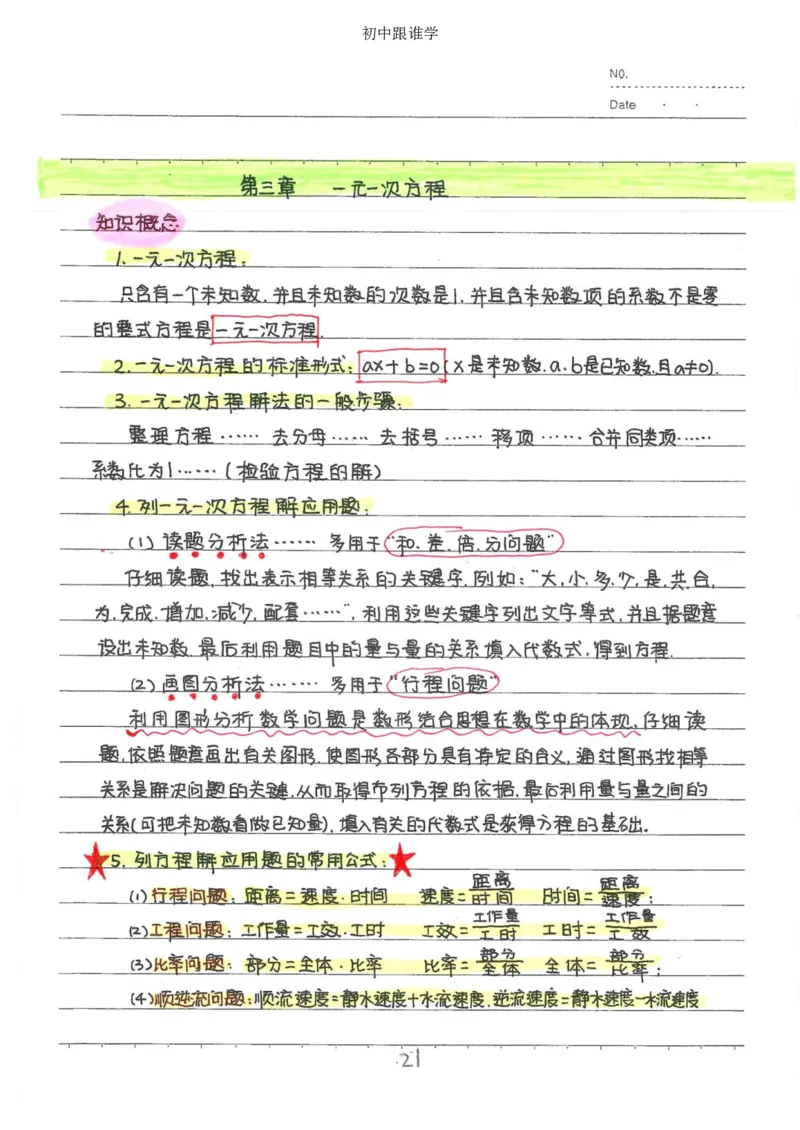 初中跟谁学
NO.
Date · ·
第三章 一元一次方程
知识概念
1.一元一次方程:
只含有一个未知数,并且未知数的次数是1,并且含未知数项的系数不是零
的整式方程是一元一次方程.
2.一元一次方程的标准形式: ax+b=0(x是未知数.a、b是已知数,且a≠0).
3.一元一次方程解法的一般步骤:
整理方程…… 去分母…… 去括号…… 移项…… 合并同类项……
系数化为1……(检验方程的解)
4.列一元一次方程解应用题:
(1)读题分析法…… 多用于“和.差.倍.分问题”
仔细读题,找出表示相等关系的关键字.例如:“大,小.多.少,是,共,合,
为,完成,增加,减少,配套……”,利用这些关键字列出文字等式,并且据题意
设出未知数.最后利用题目中的量与量的关系填入代数式,得到方程.
(2)画图分析法…… 多用于“行程问题”
利用图形分析数学问题是数形结合思想在数学中的体现,仔细读
题,依照题意画出有关图形,使图形各部分具有特定的含义,通过图形找相等
关系是解决问题的关键,从而取得布列方程的依据,最后利用量与量之间的
关系(可把未知数看做已知量),填入有关的代数式是获得方程的基础.
5.列方程解应用题的常用公式:
(1)行程问题:距离=速度·时间 速度=距离/时间 时间=距离/速度;
(2)工程问题:工作量=工效·工时 工效=工作量/工时 工时=工作量/工效
(3)比率问题:部分=全体·比率 比率=部分/全体 全体=部分/比率;
(4)顺逆流问题:顺流速度=静水速度+水流速度.逆流速度=静水速度-水流速度
21